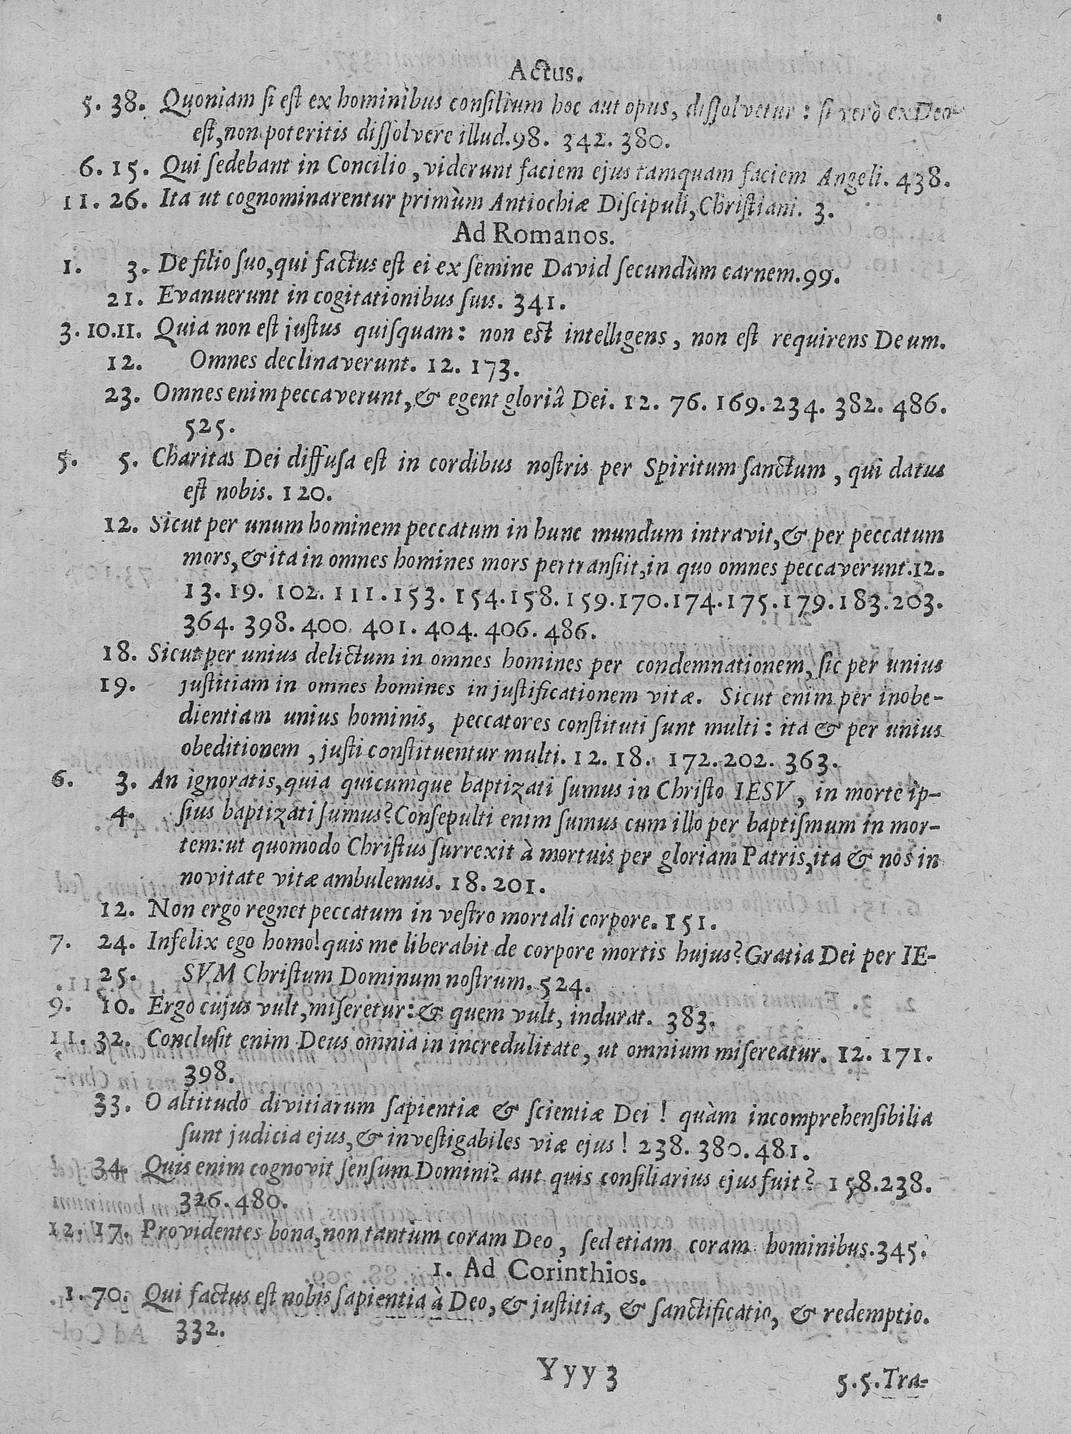 Actus.
5. 38. Quoniam si est ex hominibus consilium hoc aut opus, dissolvetur : si verò ex Deo
est, non poteritis dissolvere illud. 98. 342. 380.
6. 15. Qui sedebant in Concilio, viderunt faciem ejus tamquam faciem Angeli. 438.
11. 26. Ita ut cognominarentur primùm Antiochiæ Discipuli, Christiani. 3.
Ad Romanos.
1. 3. De filio suo, qui factus est ei ex semine David secundùm carnem. 99.
21. Evanuerunt in cogitationibus suis. 341.
3. 10. 11. Quia non est justus quisquam: non est intelligens, non est requirens Deum.
12. Omnes declinaverunt. 12. 173.
23. Omnes enim peccaverunt, & egent gloriâ Dei. 12. 76. 169. 234. 382. 486.
525.
5. 5. Charitas Dei diffusa est in cordibus nostris per Spiritum sanctum, qui datus
est nobis. 120.
12. Sicut per unum hominem peccatum in hunc mundum intravit, & per peccatum
mors, & ita in omnes homines mors pertransiit, in quo omnes peccaverunt. 12.
13. 19. 102. 111. 153. 154. 158. 159. 170. 174. 175. 179. 183. 203.
364. 398. 400. 401. 404. 406. 486.
18. Sicut per unius delictum in omnes homines per condemnationem, sic per unius
19. justitiam in omnes homines in justificationem vitæ. Sicut enim per inobe-
dientiam unius hominis, peccatores constituti sunt multi: ita & per unius
obeditionem, justi constituentur multi. 12. 18. 172. 202. 363.
6. 3. An ignoratis, quia quicumque baptizati sumus in Christo IESV, in morte ip-
4. sius baptizati sumus? Consepulti enim sumus cum illo per baptismum in mor-
tem: ut quomodo Christus surrexit à mortuis per gloriam Patris, ita & nos in
novitate vitæ ambulemus. 18. 201.
12. Non ergo regnet peccatum in vestro mortali corpore. 151.
7. 24. Infelix ego homo! quis me liberabit de corpore mortis hujus? Gratia Dei per IE-
25. SVM Christum Dominum nostrum. 524.
9. 10. Ergo cujus vult, miseretur: & quem vult, indurat. 383.
11. 32. Conclusit enim Deus omnia in incredulitate, ut omnium misereatur. 12. 171.
398.
33. O altitudo divitiarum sapientiæ & scientiæ Dei ! quàm incomprehensibilia
sunt judicia ejus, & investigabiles viæ ejus ! 238. 380. 481.
34. Quis enim cognovit sensum Domini? aut quis consiliarius ejus fuit? 158. 238.
326. 480.
12. 17. Providentes bona, non tantùm coram Deo, sed etiam coram hominibus. 345.
1. Ad Corinthios.
1. 70. Qui factus est nobis sapientia à Deo, & justitia, & sanctificatio, & redemptio.
332.
Yyy 3
5. 5. Tra-